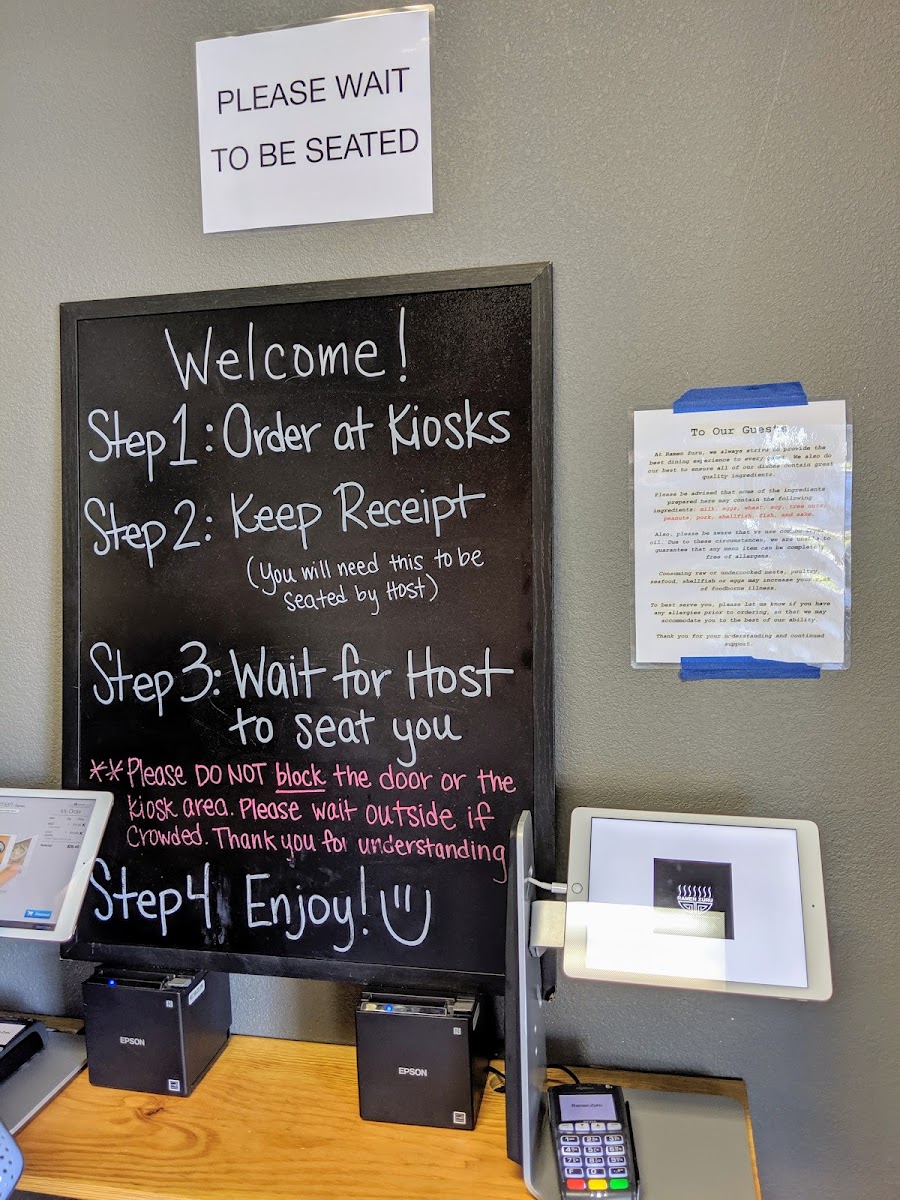 PLEASE WAIT
TO BE SEATED
Welcome!
Step 1: Order at Kiosks
Step 2: Keep Receipt
(You will need this to be
seated by Host)
Step 3: Wait for Host
to seat you
**Please DO NOT block the door or the
Kiosk area. Please wait outside if
Crowded. Thank you for understanding
Step 4 Enjoy!
To Our Guests
At Ramen Zuru, we always strive to provide the
best dining experience to every guest. We also do
our best to ensure all of our dishes contain great
quality ingredients.
Please be advised that some of the ingredients
prepared here may contain the following
ingredients: milk, eggs, wheat, soy, tree nuts,
peanuts, pork, shellfish, fish, and sake.
Also, please be aware that we use common fryer
oil. Due to these circumstances, we are unable to
guarantee that any menu item can be completely
free of allergens.
Consuming raw or undercooked meats, poultry,
seafood, shellfish or eggs may increase your risk
of foodborne illness.
To best serve you, please let us know if you have
any allergies prior to ordering, so that we may
accommodate you to the best of our ability.
Thank you for your understanding and continued
support.
RAMEN ZURU
EPSON
EPSON
RamenZuru